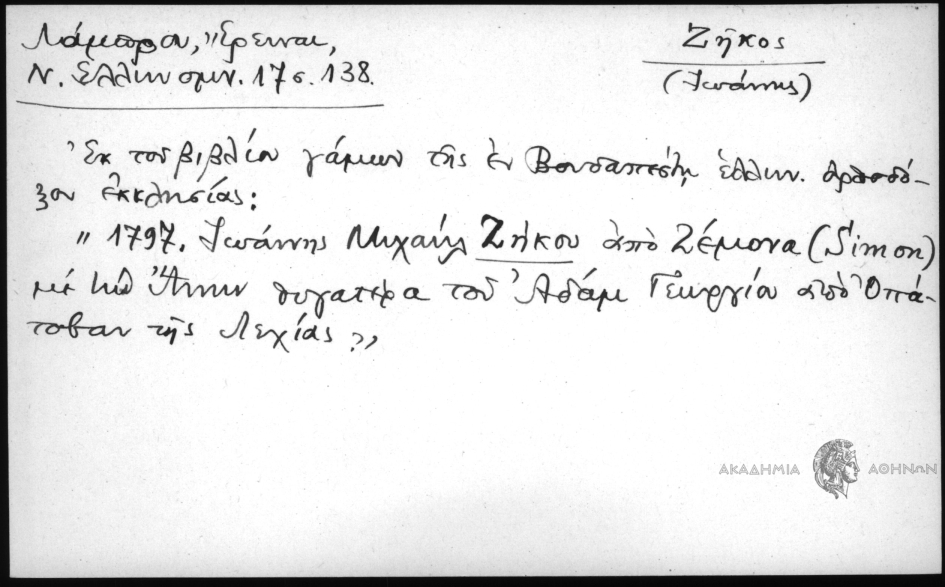 Λάμπρου, Ἔρευναι,
Ν. Ἑλλην μην. 17 σ. 138.
Ζῆκος
(Ἰωάννης)
Ἐκ τοῦ βιβλίου γάμων τῆς ἐν Βουδαπέστῃ ἑλλην. ὀρθοδό-
ξου ἐκκλησίας:
" 1797. Ἰωάννης Μιχαὴλ Ζήκου ἀπὸ Ζέμονα (Simon)
μὲ τὴν Ἄνναν θυγατέρα τοῦ Ἀδὰμ Γεωργίου ἀπὸ Ὀπά-
τοβαν τῆς Λεχίας."
ΑΚΑΔΗΜΙΑ ΑΘΗΝΩΝ